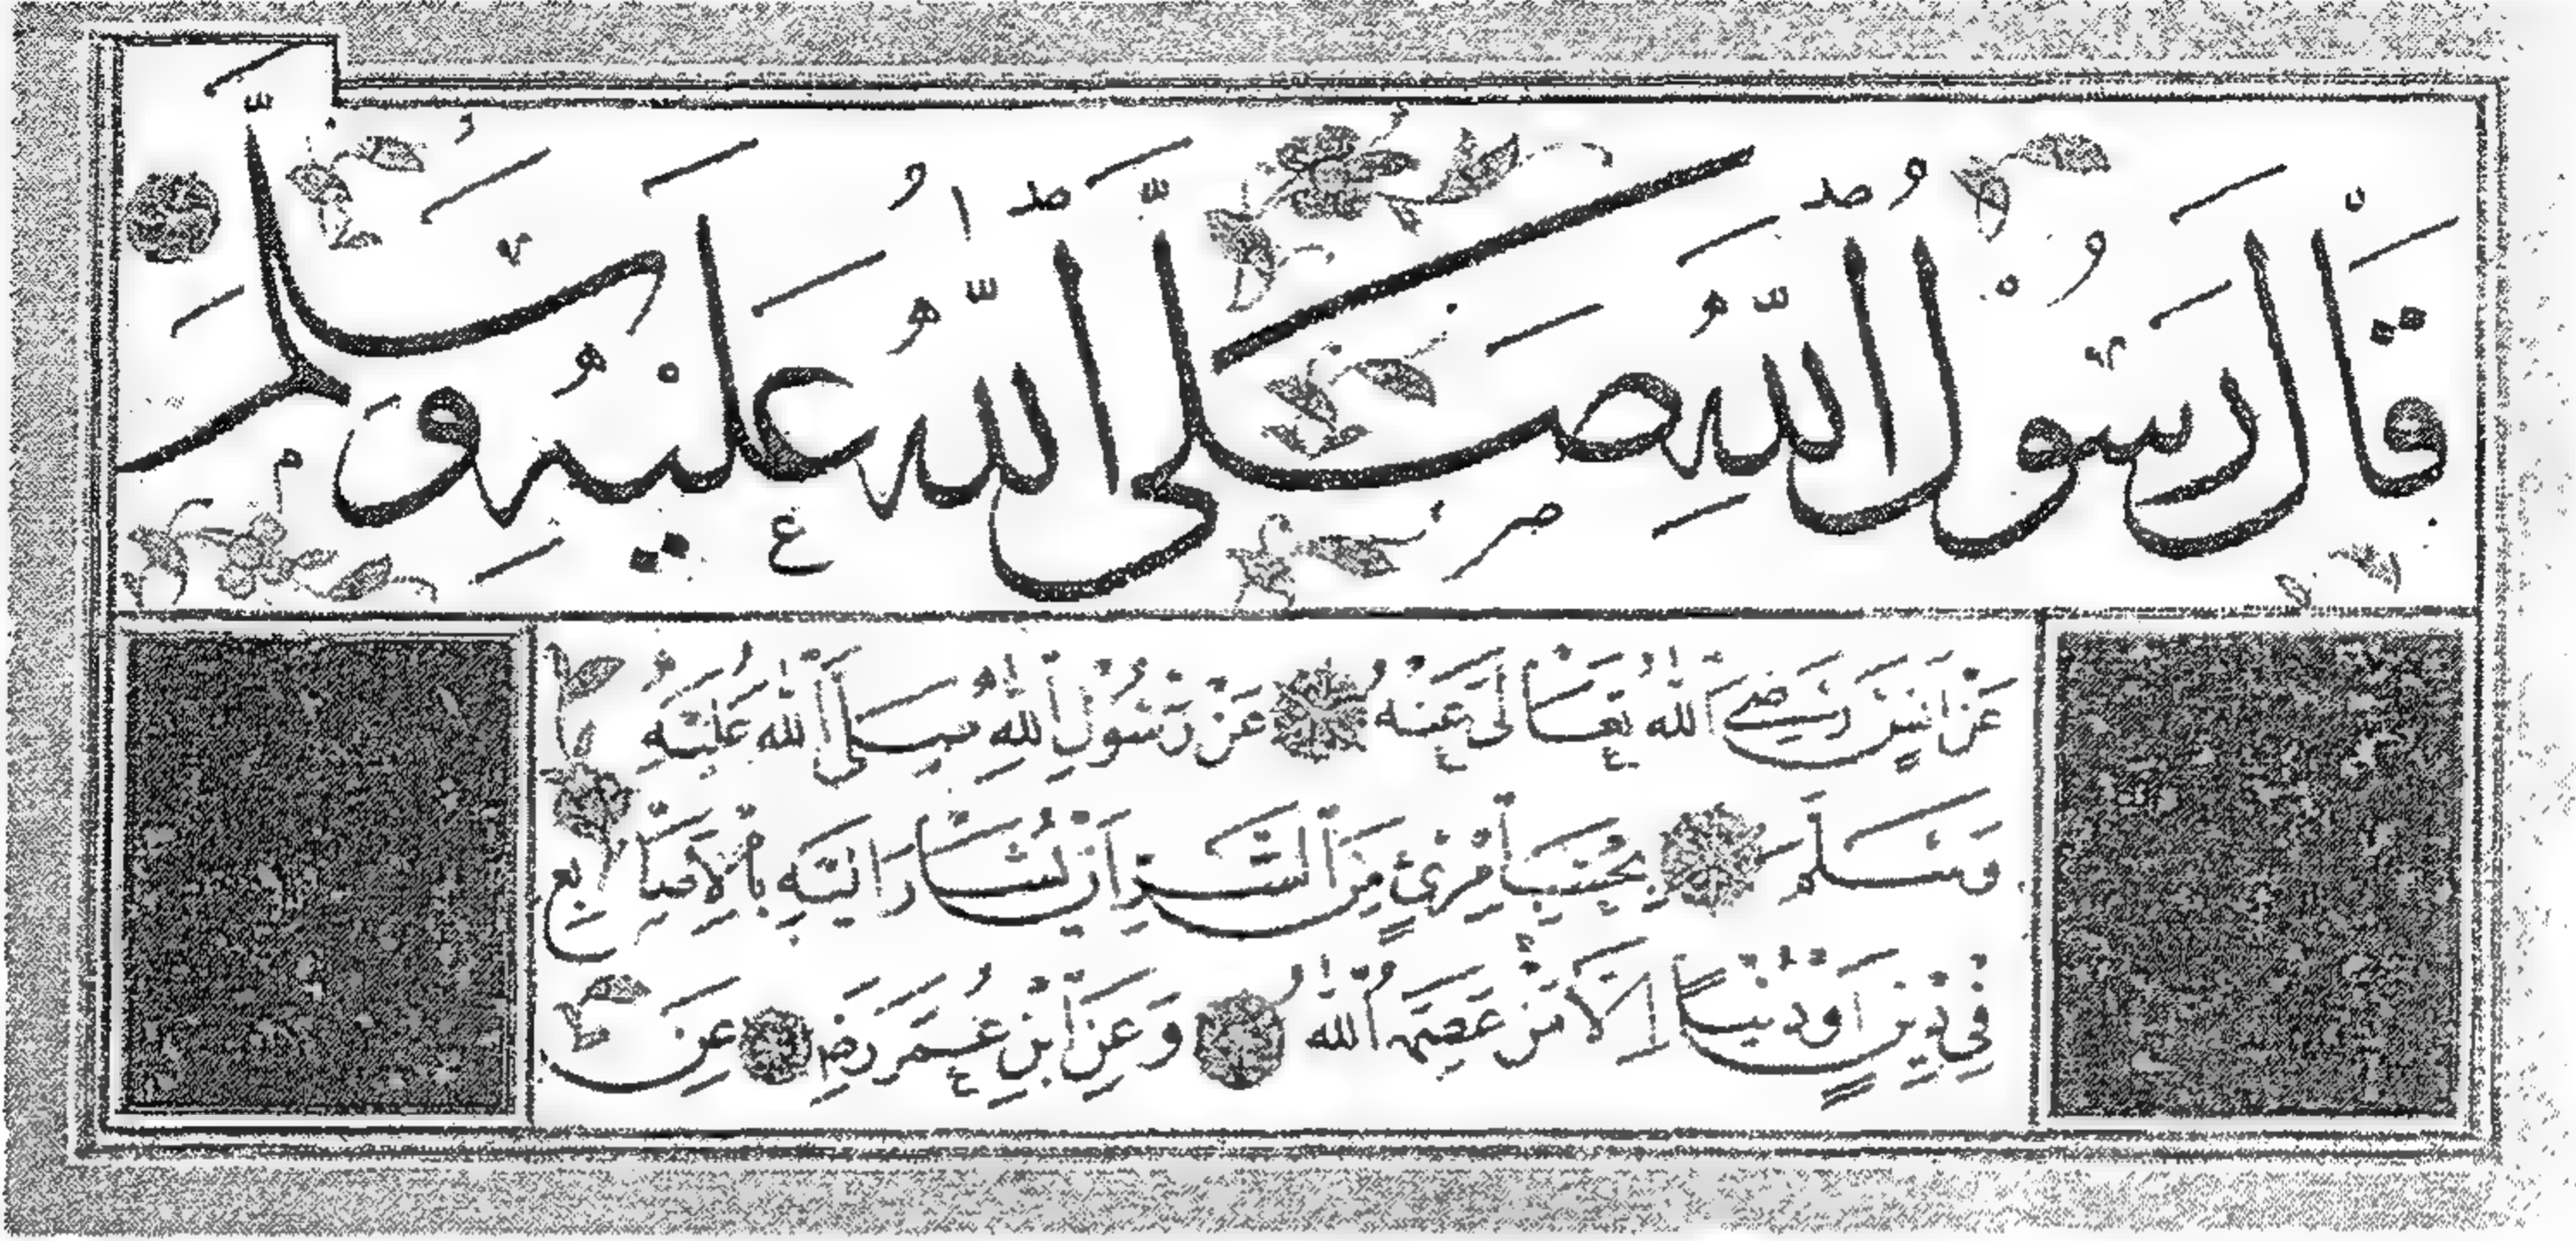 قَالَ رَسُوْلُ اللّٰهِ صَلَّى اللّٰهُ عَلَيْهِ وَسَلَّمَ
عَنْ اَنَسٍ رَضِيَ اللّٰهُ تَعَالٰى عَنْهُ عَنْ رَسُوْلِ اللّٰهِ صَلَّى اللّٰهُ عَلَيْهِ
وَسَلَّمَ بِحَسْبِ امْرِئٍ مِنَ الشَّرِّ اَنْ يُشَارَ اِلَيْهِ بِالْاَصَابِعِ
فِي دِيْنٍ اَوْ دُنْيَا اِلَّا مَنْ عَصَمَهُ اللّٰهُ وَعَنِ ابْنِ عُمَرَ رَضِ عَنِ